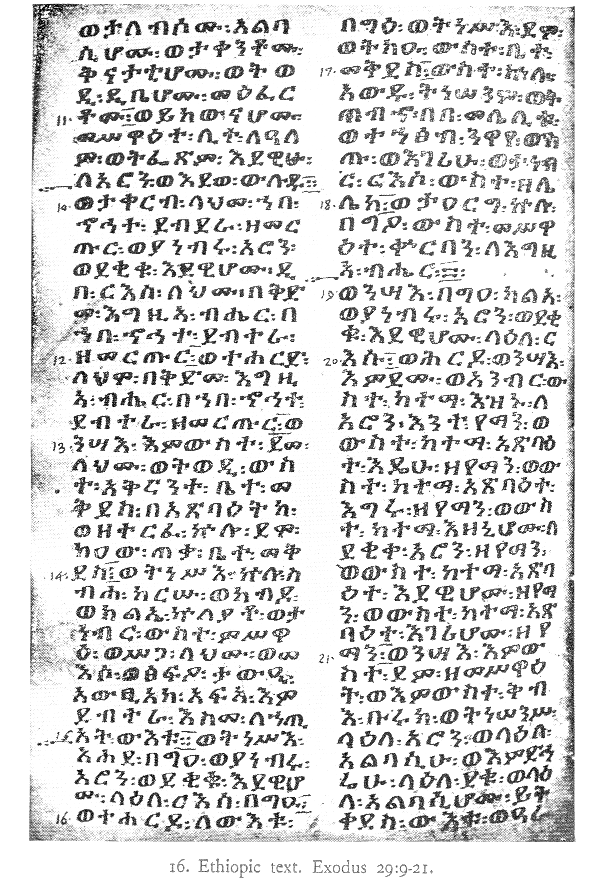 ወታለብሶሙ፡አልባ
ሲሆሙ፡ወታቀንቶሙ፡
ቅናታቲሆሙ፡ወት ወ
ዲ፡ዲቤሆሙ፡መዕፈር
11. ቶሙ፡ወይከውኖሙ፡
መሥዋዕተ፡ሊተ፡ለዓለ
ም፡ወትፌጽም፡እደዊሁ፡
ለአሮን፡ወእደወ፡ውሉዱ፡፡
10. ወታቀርብ፡ላህመ፡ኀበ፡
ኆኅተ፡ደብተራ፡ዘመር
ጡር፡ወያነብሩ፡አሮን፡
ወደቂቁ፡እደዊሆሙ፡ዲ
በ፡ርእሰ፡ላህሙ፡በቅድ
መ፡እግዚአ፡ብሔር፡በ
ኀበ፡ኆኅተ፡ደብተራ፡
12. ዘመርጡር፡፡ወተሐርድ፡
ላህሞ፡በቅድመ፡እግዚ
አ፡ብሔር፡በኀበ፡ኆኅተ፡
ደብተራ፡ዘመርጡር፡፡ወ
13. ንሣእ፡እምውስተ፡ደመ፡
ላህሙ፡ወትወዲ፡ውስ
ተ፡አቅርንተ፡ቤተ፡መ
ቅደስ፡በአጽባዕትከ፡
ወዘተርፈ፡ኵሉ፡ደሞ፡
ከዐው፡ጠቃ፡ቤተ፡መቅ
14. ደስ፡፡ወትነሥእ፡ኵሉ፡ስ
ብሐ፡ከርሡ፡ወከብዶ፡
ወክልኤ፡ኵልያቶ፡ወታ
ነብር፡ውስተ፡ምሥዋ
ዕ፡ወሥጋ፡ላህሙ፡ወመ
እሶ፡ወፅፍዖ፡ታውዒ፡
አውፂአከ፡አፍአ፡እም
ደብተራ፡እስመ፡ለኀጢ
15. አት፡ውእቱ፡፡ወትነሥእ፡
አሐደ፡በግዐ፡ወያነብሩ፡
አሮን፡ወደቂቁ፡እደዊሆ
ሙ፡ላዕለ፡ርእሰ፡በግዑ፡
16. ወተሐርዶ፡ለውእቱ፡
በግዕ፡ወትነሥእ፡ደሞ፡
ወትክዑ፡ውስተ፡ቤተ፡
17. መቅደስ፡፡ውስተ፡ኵሉ፡
አውዱ፡ትነሥኦ፡ወት
በበ፡መሌሊቱ፡
ወተኀፅብ፡ንዋየ፡ውስ
ጡ፡ወእገሪሁ፡ወታነብ
ር፡ርእሶ፡ውስተ፡ዘሌ
18. ሌከ፡፡ወታዐርግ፡ኵሎ፡
በግዖ፡ውስተ፡ምሥዋ
ዕተ፡ቍርባን፡ለእግዚ
አ፡ብሔር፡፡
19. ወንሣእ፡በግዐ፡ካልአ፡
ወያነብሩ፡አሮን፡ወደቂ
ቁ፡እደዊሆሙ፡ላዕለ፡ር
20. እሱ፡፡ወሕርዶ፡ወንሣእ፡
እምደሙ፡ወአንብር፡ው
ስተ፡ከተማ፡እዝኑ፡ለ
አሮን፡እንተ፡የማን፡ወ
ውስተ፡ከተማ፡አጽባዕ
ተ፡እዴሁ፡ዘየማን፡ወው
ስተ፡ከተማ፡አጽባዕተ፡
እግሩ፡ዘየማን፡ወውስ
ተ፡ከተማ፡እዘኒሆሙ፡ለ
ደቂቀ፡አሮን፡ዘየማን፡
ወውስተ፡ከተማ፡አጽባ
ዕተ፡እደዊሆሙ፡ዘየማ
ን፡ወውስተ፡ከተማ፡አጽ
ባዕተ፡እገሪሆሙ፡ዘየ
21. ማን፡፡ወንሣእ፡እምው
ስተ፡ደም፡ዘመሥዋዕ
ት፡ወእምውስተ፡ቅብ
እ፡ቡሩክ፡ወትነሥንሥ፡
ላዕለ፡አሮን፡ወላዕለ፡
አልባሲሁ፡ወእምደኅ
ሬሁ፡ላዕለ፡ደቂቁ፡ወላዕ
ለ፡አልባሲሆሙ፡ይት
ቀደስ፡ውእቱ፡
16. Ethiopic text. Exodus 29:9-21.